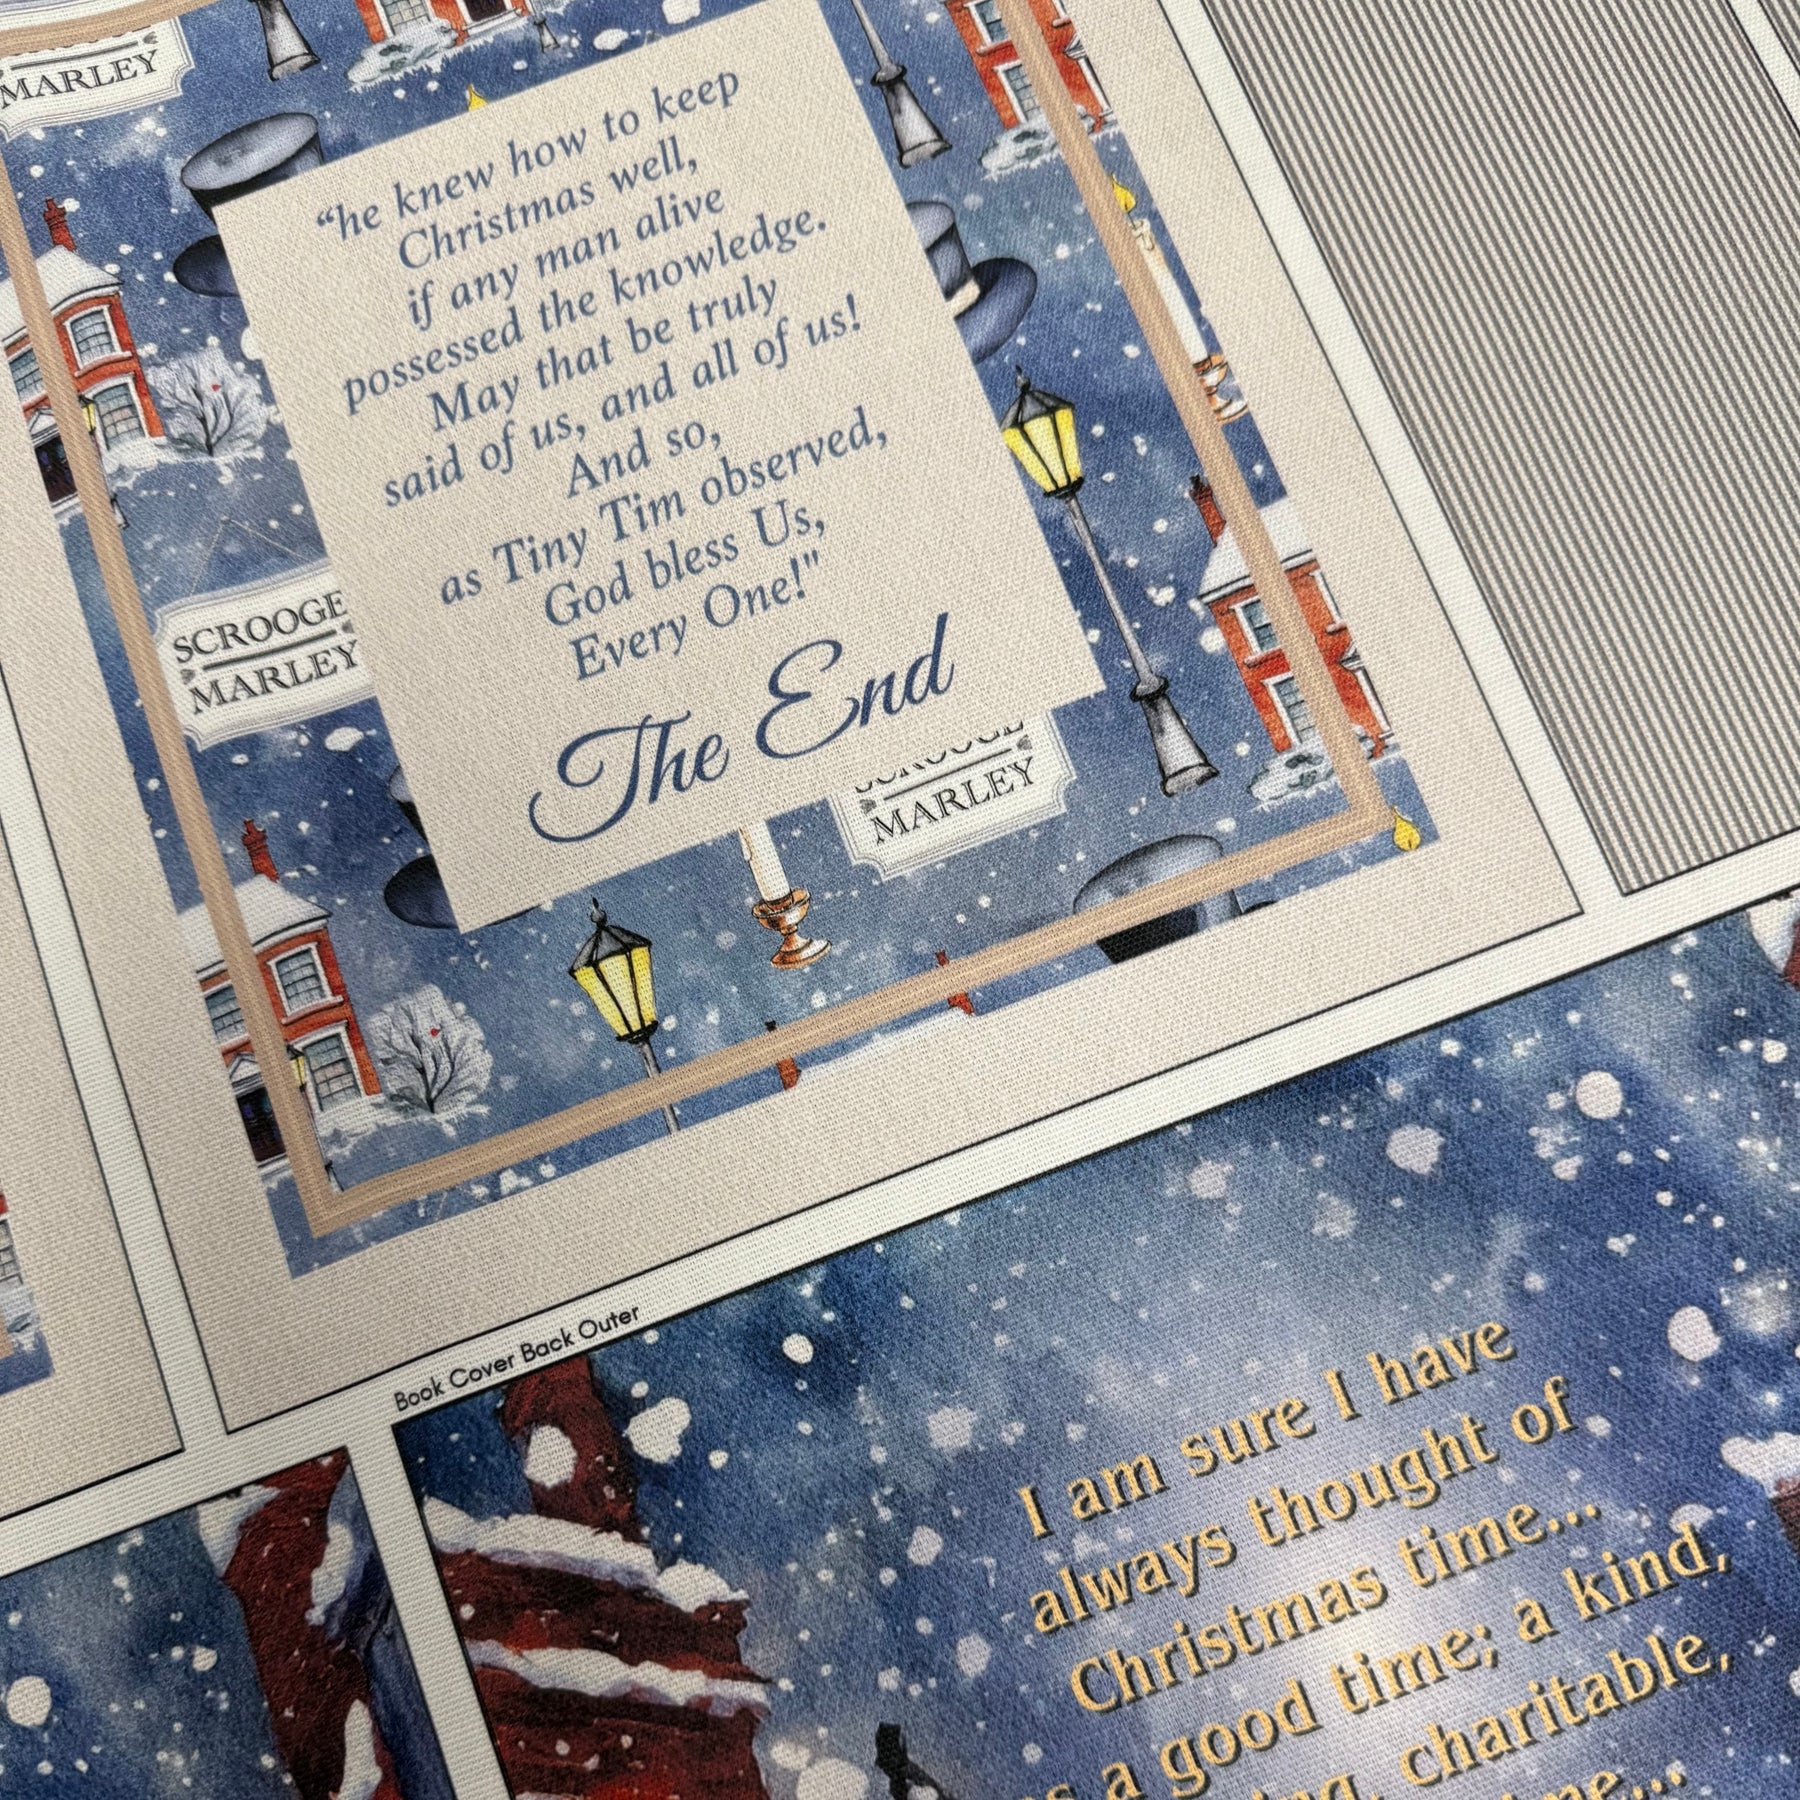 MARLEY
“he knew how to keep
Christmas well,
if any man alive
possessed the knowledge.
May that be truly
said of us, and all of us!
And so,
as Tiny Tim observed,
God bless Us,
Every One!"
The End
SCROOGE
MARLEY
SCROOGE
MARLEY
Book Cover Back Outer
I am sure I have
always thought of
Christmas time...
a good time; a kind,
charitable,